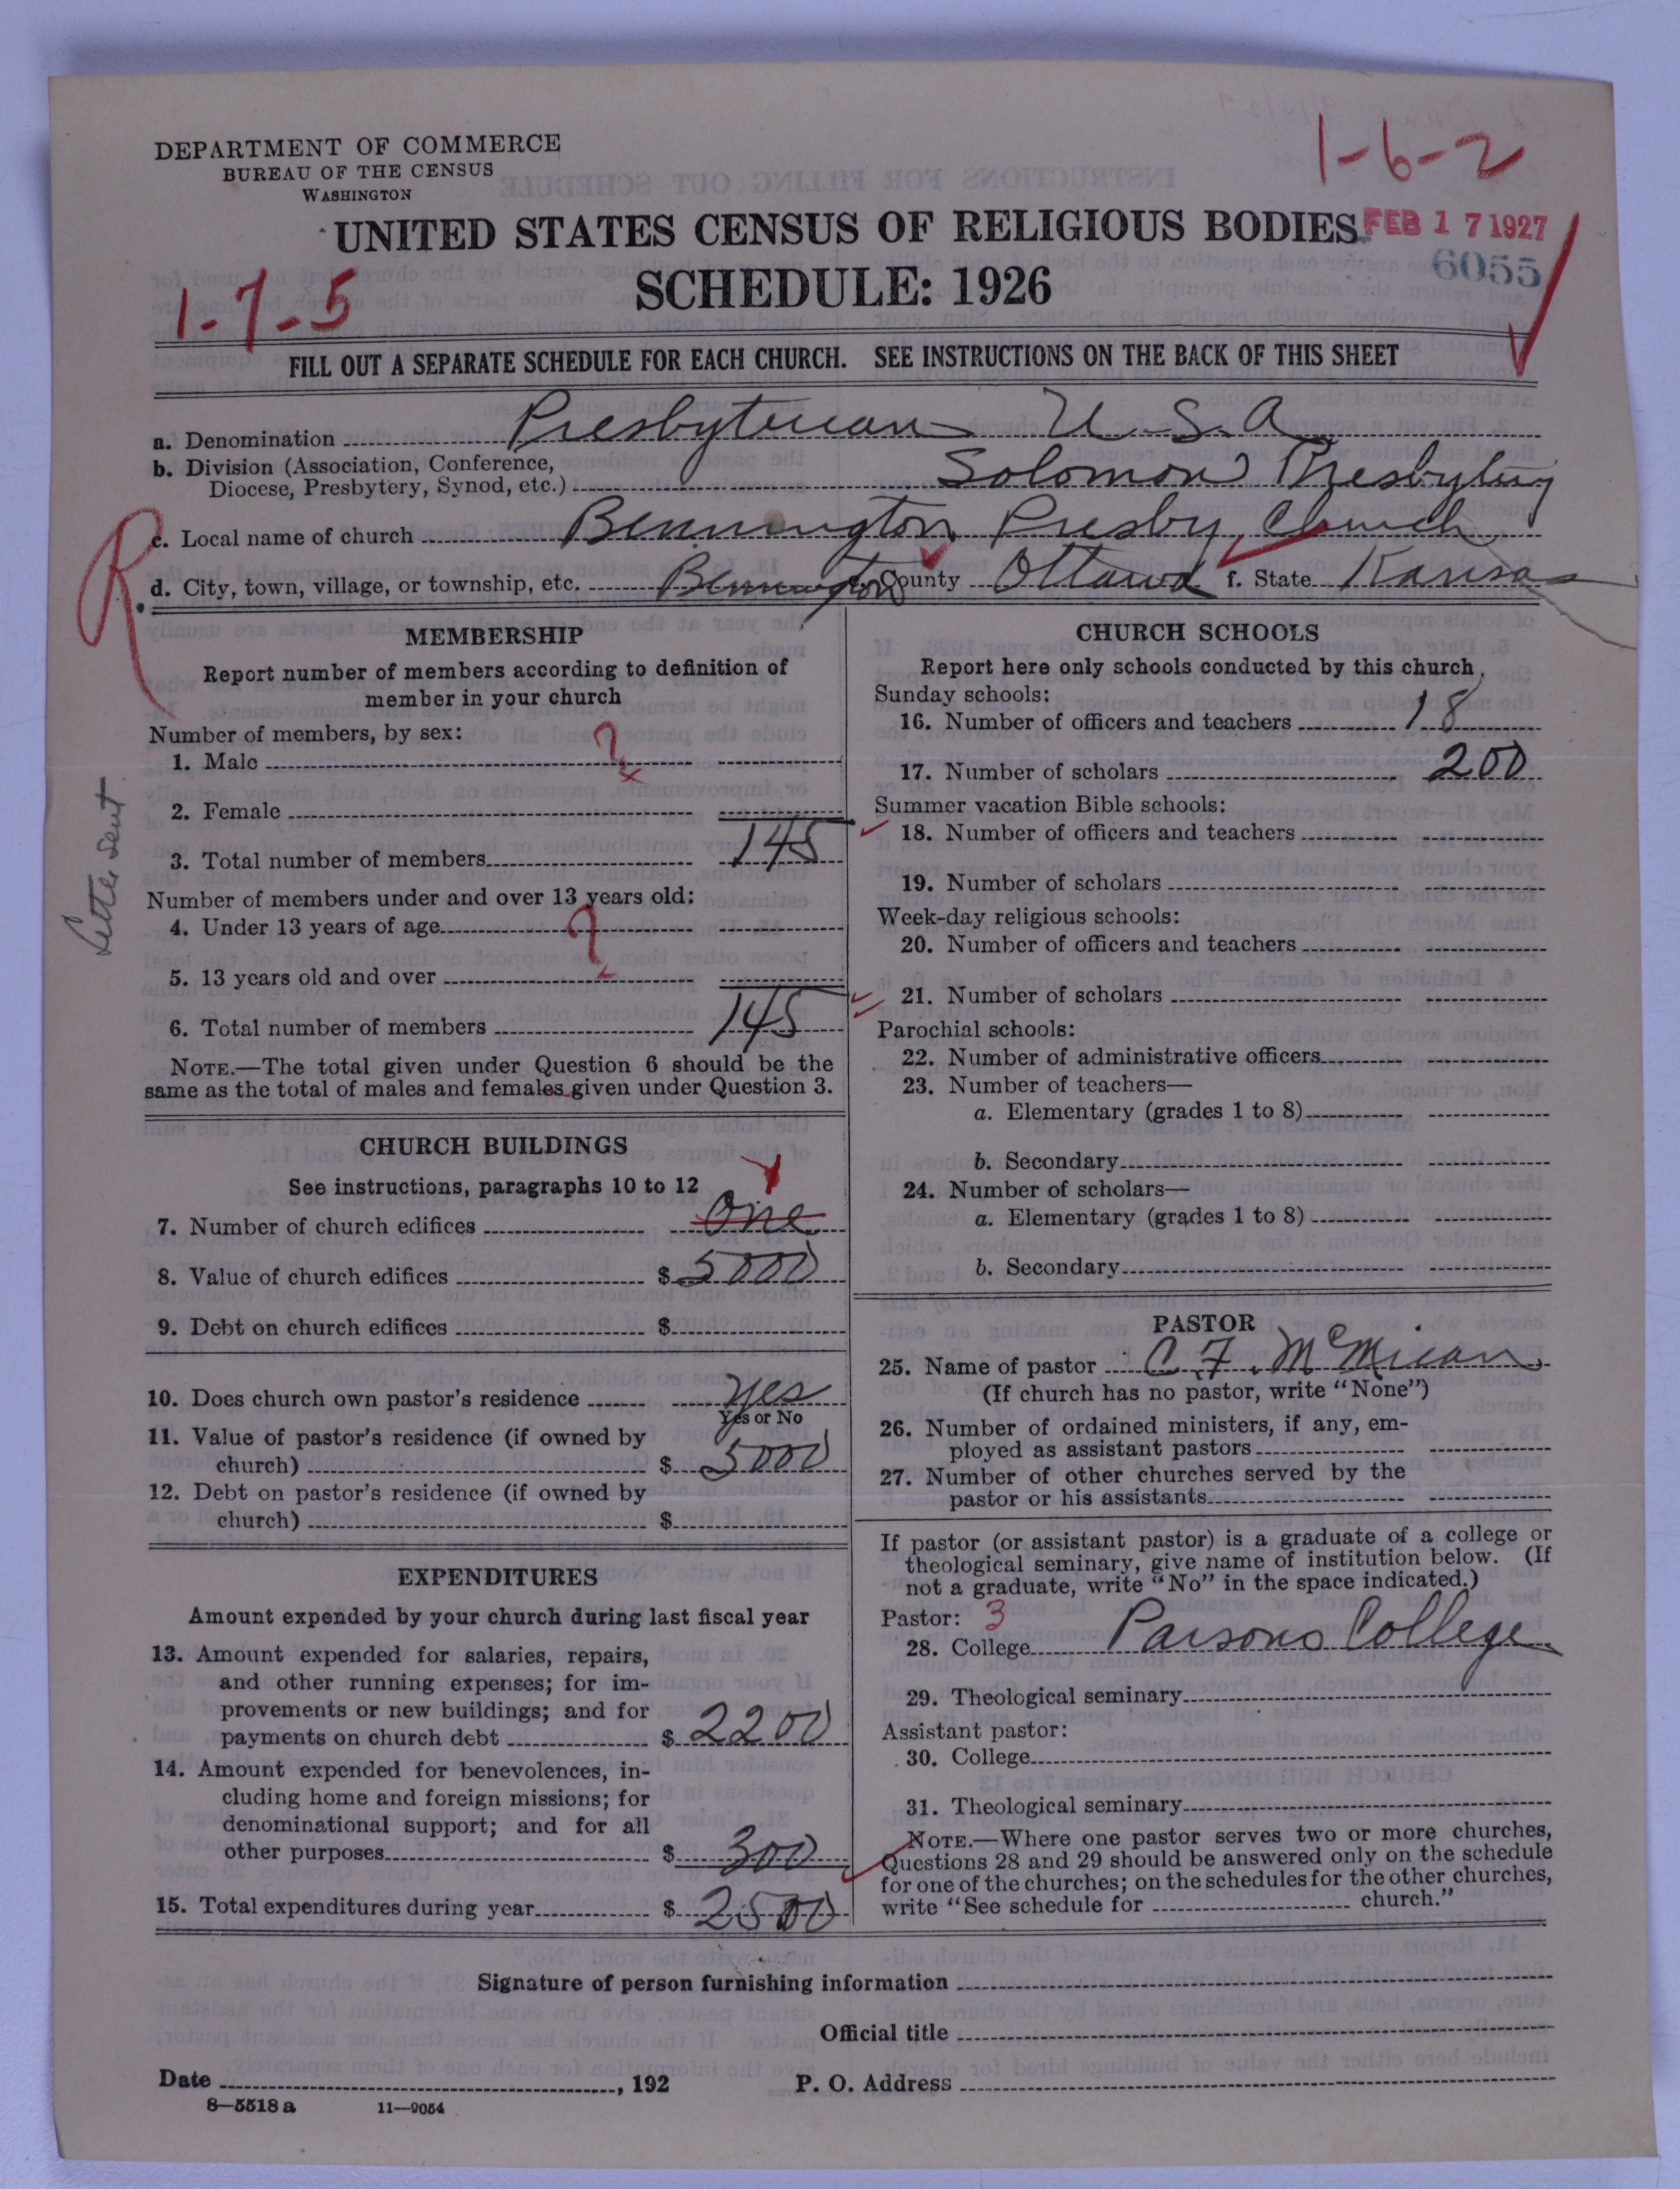 DEPARTMENT OF COMMERCE
BUREAU OF THE CENSUS
WASHINGTON
1-6-2
UNITED STATES CENSUS OF RELIGIOUS BODIES
FEB 17 1927
6055
SCHEDULE: 1926
1-7-5
FILL OUT A SEPARATE SCHEDULE FOR EACH CHURCH. SEE INSTRUCTIONS ON THE BACK OF THIS SHEET
a. Denomination Presbyterian U.S.A
b. Division (Association, Conference,
Diocese, Presbytery, Synod, etc.) Solomon Presbytery
R
c. Local name of church Bennington Presby Church
d. City, town, village, or township, etc. Bennington e. County Ottawa f. State Kansas
MEMBERSHIP
Report number of members according to definition of
member in your church
Number of members, by sex:
1. Male ?
2. Female
3. Total number of members 145
Letter sent
Number of members under and over 13 years old:
4. Under 13 years of age ?
5. 13 years old and over
6. Total number of members 145
NOTE.—The total given under Question 6 should be the
same as the total of males and females given under Question 3.
CHURCH BUILDINGS
See instructions, paragraphs 10 to 12
1
7. Number of church edifices One
8. Value of church edifices $ 5000
9. Debt on church edifices $
10. Does church own pastor's residence Yes
Yes or No
11. Value of pastor's residence (if owned by
church) $ 5000
12. Debt on pastor's residence (if owned by
church) $
EXPENDITURES
Amount expended by your church during last fiscal year
13. Amount expended for salaries, repairs,
and other running expenses; for im-
provements or new buildings; and for
payments on church debt $ 2200
14. Amount expended for benevolences, in-
cluding home and foreign missions; for
denominational support; and for all
other purposes $ 300
15. Total expenditures during year $ 2500
CHURCH SCHOOLS
Report here only schools conducted by this church
Sunday schools:
16. Number of officers and teachers 18
17. Number of scholars 200
Summer vacation Bible schools:
18. Number of officers and teachers
19. Number of scholars
Week-day religious schools:
20. Number of officers and teachers
21. Number of scholars
Parochial schools:
22. Number of administrative officers
23. Number of teachers—
a. Elementary (grades 1 to 8)
b. Secondary
24. Number of scholars—
a. Elementary (grades 1 to 8)
b. Secondary
PASTOR
25. Name of pastor C. F. McMican
(If church has no pastor, write "None")
26. Number of ordained ministers, if any, em-
ployed as assistant pastors
27. Number of other churches served by the
pastor or his assistants
If pastor (or assistant pastor) is a graduate of a college or
theological seminary, give name of institution below. (If
not a graduate, write "No" in the space indicated.)
Pastor: 3
28. College Parsons College
29. Theological seminary
Assistant pastor:
30. College
31. Theological seminary
NOTE.—Where one pastor serves two or more churches,
Questions 28 and 29 should be answered only on the schedule
for one of the churches; on the schedules for the other churches,
write "See schedule for church."
Signature of person furnishing information
Official title
Date , 192
P. O. Address
8—5518 a 11—9054